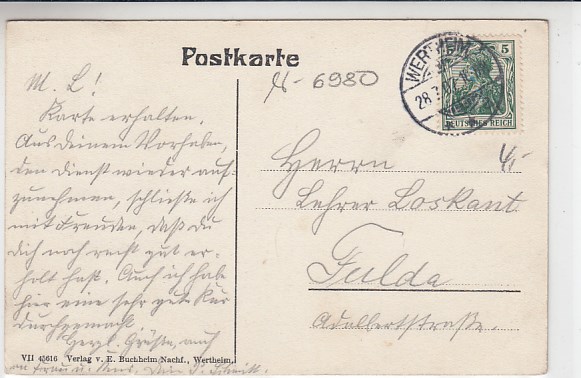 Postkarte
M. L!
Karte erhalten.
Aus Deinem Vorhaben,
den Dienst wieder auf-
zunehmen, schließe ich
mit Freuden, daß du
dich noch recht gut er-
holt hast. Auch ich habe
hier eine sehr gute Kur
durchgemacht.
Herzl. Grüße, auch
an Frau u. Dein
VII 45616 Verlag v. E. Buchheim Nachf., Wertheim.
N-6980
WERTHEIM
28.
5
DEUTSCHES REICH
Herrn
Lehrer Loskant
Fulda
Adalbertstraße.